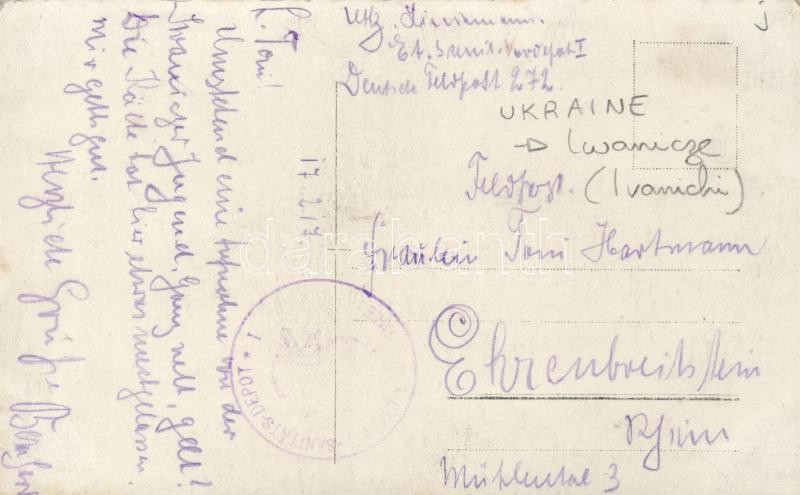 Deutsche Feldpost 272.
UKRAINE
→ Iwanicze
(Ivanichi)
Feldpost.
Fräulein Toni Hartmann
Ehrenbreitstein
Rhein
Mühlental 3
17.2.17
L. Toni!
Umstehend eine Aufnahme von der
Iwaniczer Jugend. Ganz nett, gelt?
Die Kälte hat hier etwas nachgelassen.
Mir geht's gut.
Herzliche Grüße
SANITÄTS-DEPOT * I
darabanth